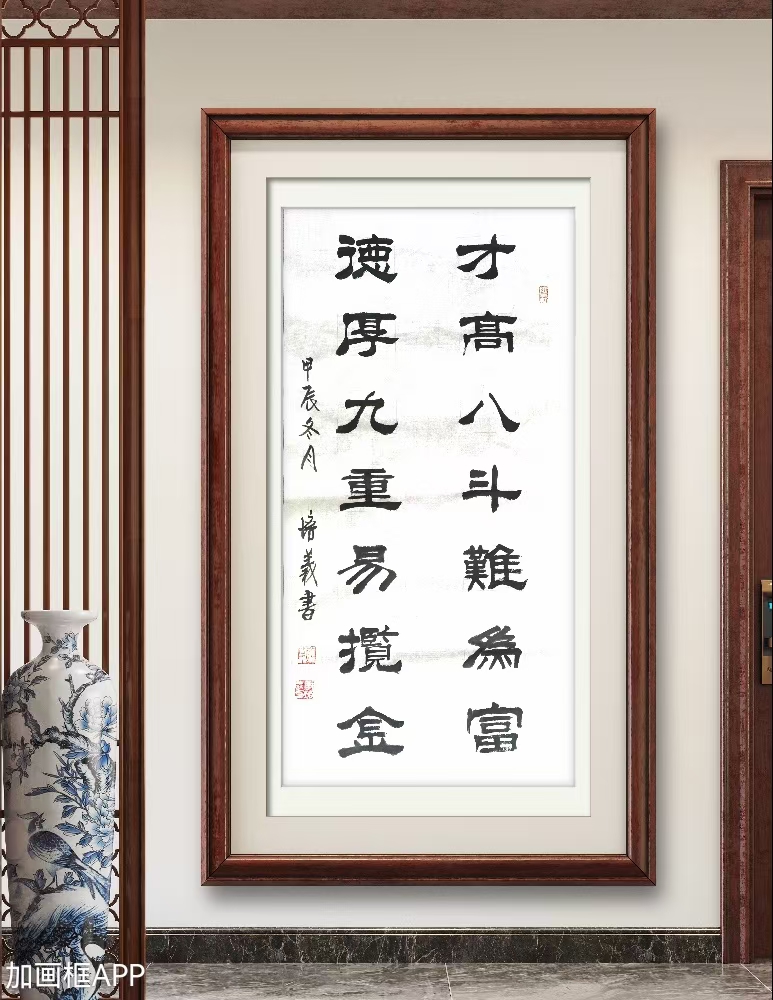 才高八斗難為富
德厚九重易攬金
甲辰冬月 培義書
加画框APP